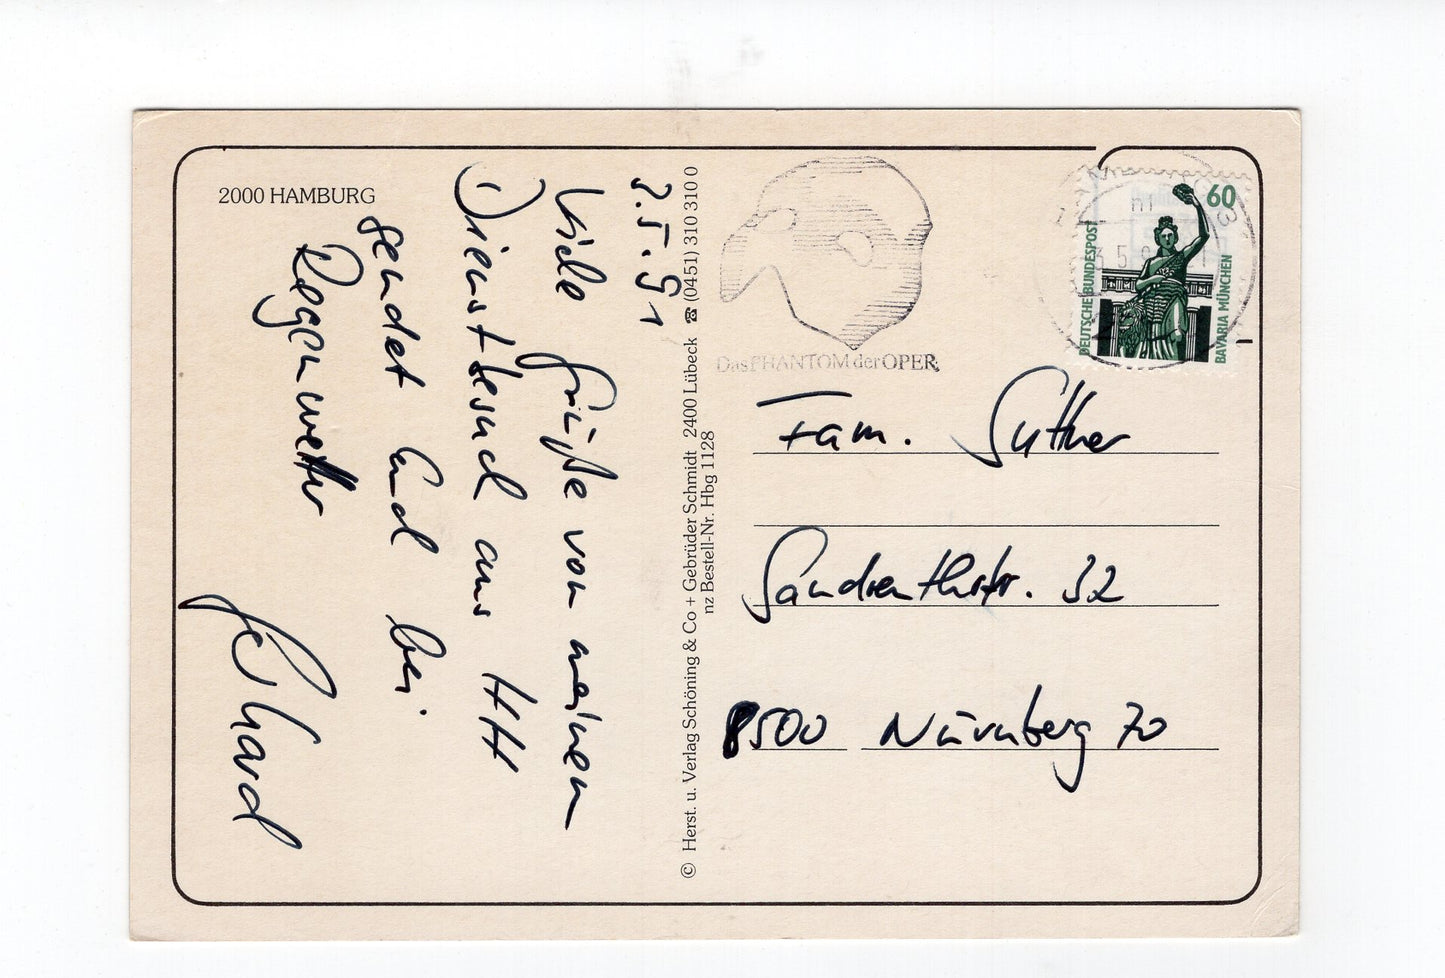 2000 HAMBURG
2.5.91
Viele Grüße von meinen
Dienstbesuch aus HH
sendet Euch bei
Regenwetter
Gerhard
© Herst. u. Verlag Schöning & Co + Gebrüder Schmidt 2400 Lübeck ☎ (0451) 310 310 0
nz Bestell-Nr. Hbg 1128
Das PHANTOM der OPER
60
DEUTSCHE BUNDESPOST
BAVARIA MÜNCHEN
Fam. Suttner
32
8500 Nürnberg 70